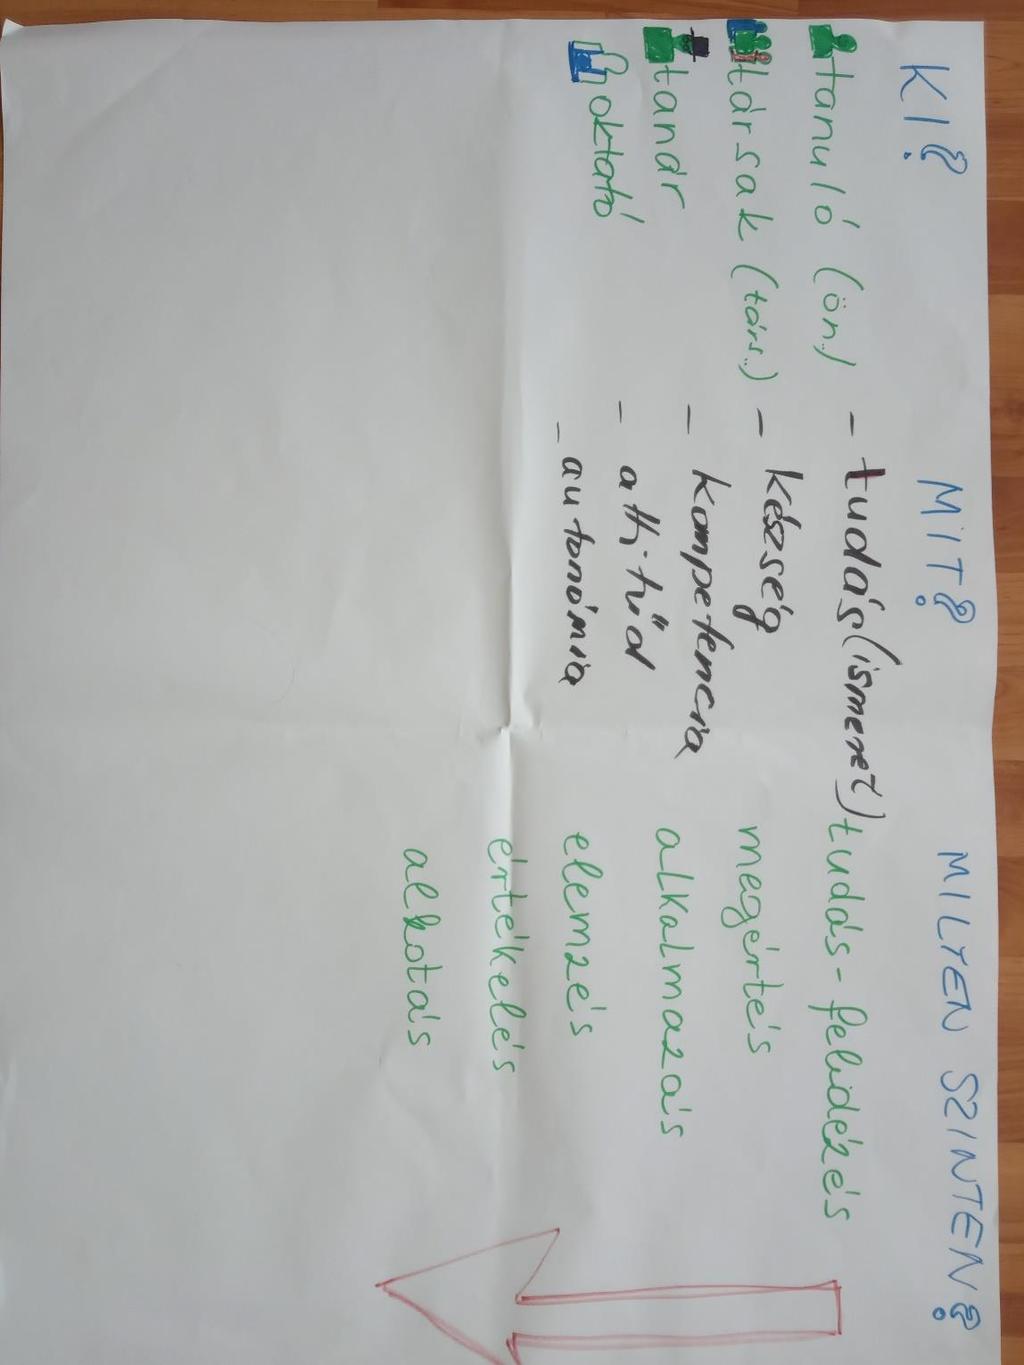 KI?
tanuló (ön.)
társak (társ.)
tanár
oktató
MIT?
- tudás (ismeret)
- készség
- kompetencia
- attitűd
- autonómia
MILYEN SZINTEN?
tudás-felidézés
megértés
alkalmazás
elemzés
értékelés
alkotás